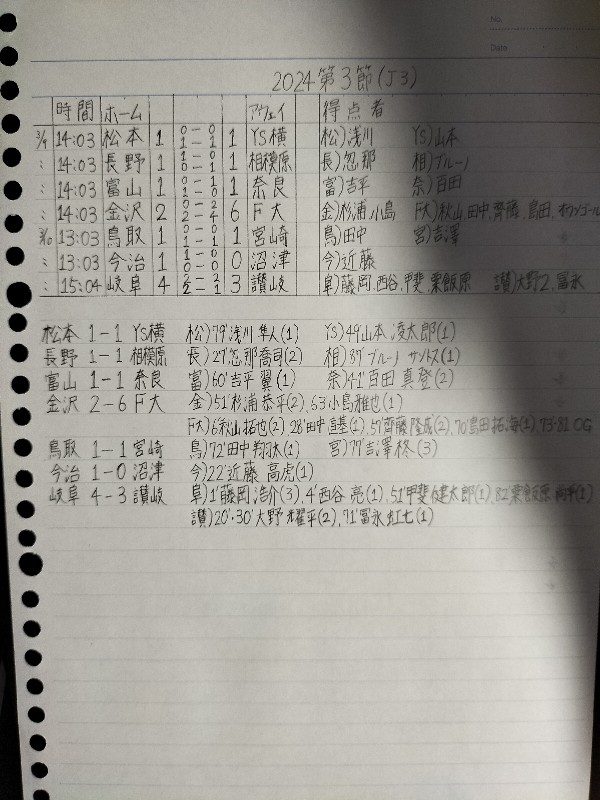 No.
Date
2024 第3節 (J3)
時間 ホーム アウェイ 得点者
3/9 14:03 松本 1 0-0 1-1 1 YS横 松)浅川 YS)山本
: 14:03 長野 1 1-0 0-1 1 相模原 長)忽那 相)ブルーノ
: 14:03 富山 1 0-1 1-0 1 奈良 富)吉平 奈)百田
: 14:03 金沢 2 0-2 2-4 6 F大 金)杉浦,小島 F大)秋山,田中,齊藤,島田,オウンゴール
3/10 13:03 鳥取 1 0-0 1-1 1 宮崎 鳥)田中 宮)吉澤
: 13:03 今治 1 1-0 0-0 0 沼津 今)近藤
: 15:04 岐阜 4 2-2 2-1 3 讃岐 阜)藤岡,西谷,甲斐,粟飯原 讃)大野2,冨永
松本 1-1 YS横 松)79'浅川 隼人(1) YS)49山本 凌太郎(1)
長野 1-1 相模原 長)27'忽那喬司(2) 相)87'ブルーノ サントス(1)
富山 1-1 奈良 富)60'吉平 翼(1) 奈)41'百田 真登(2)
金沢 2-6 F大 金)51'杉浦 恭平(2),63小島雅也(1)
F大)6'秋山拓也(2) 28'田中 直基(1),57齊藤隆成(2),70'島田拓海(1),73・81 OG
鳥取 1-1 宮崎 鳥)72'田中 翔太(1) 宮)79'吉澤柊(3)
今治 1-0 沼津 今)22'近藤 高虎(1)
岐阜 4-3 讃岐 阜)1'藤岡浩介(3),4'西谷 亮(1),51'甲斐健太郎(1),82'粟飯原 尚平(1)
讃)20'・30'大野 耀平(2),71'冨永 虹七(1)